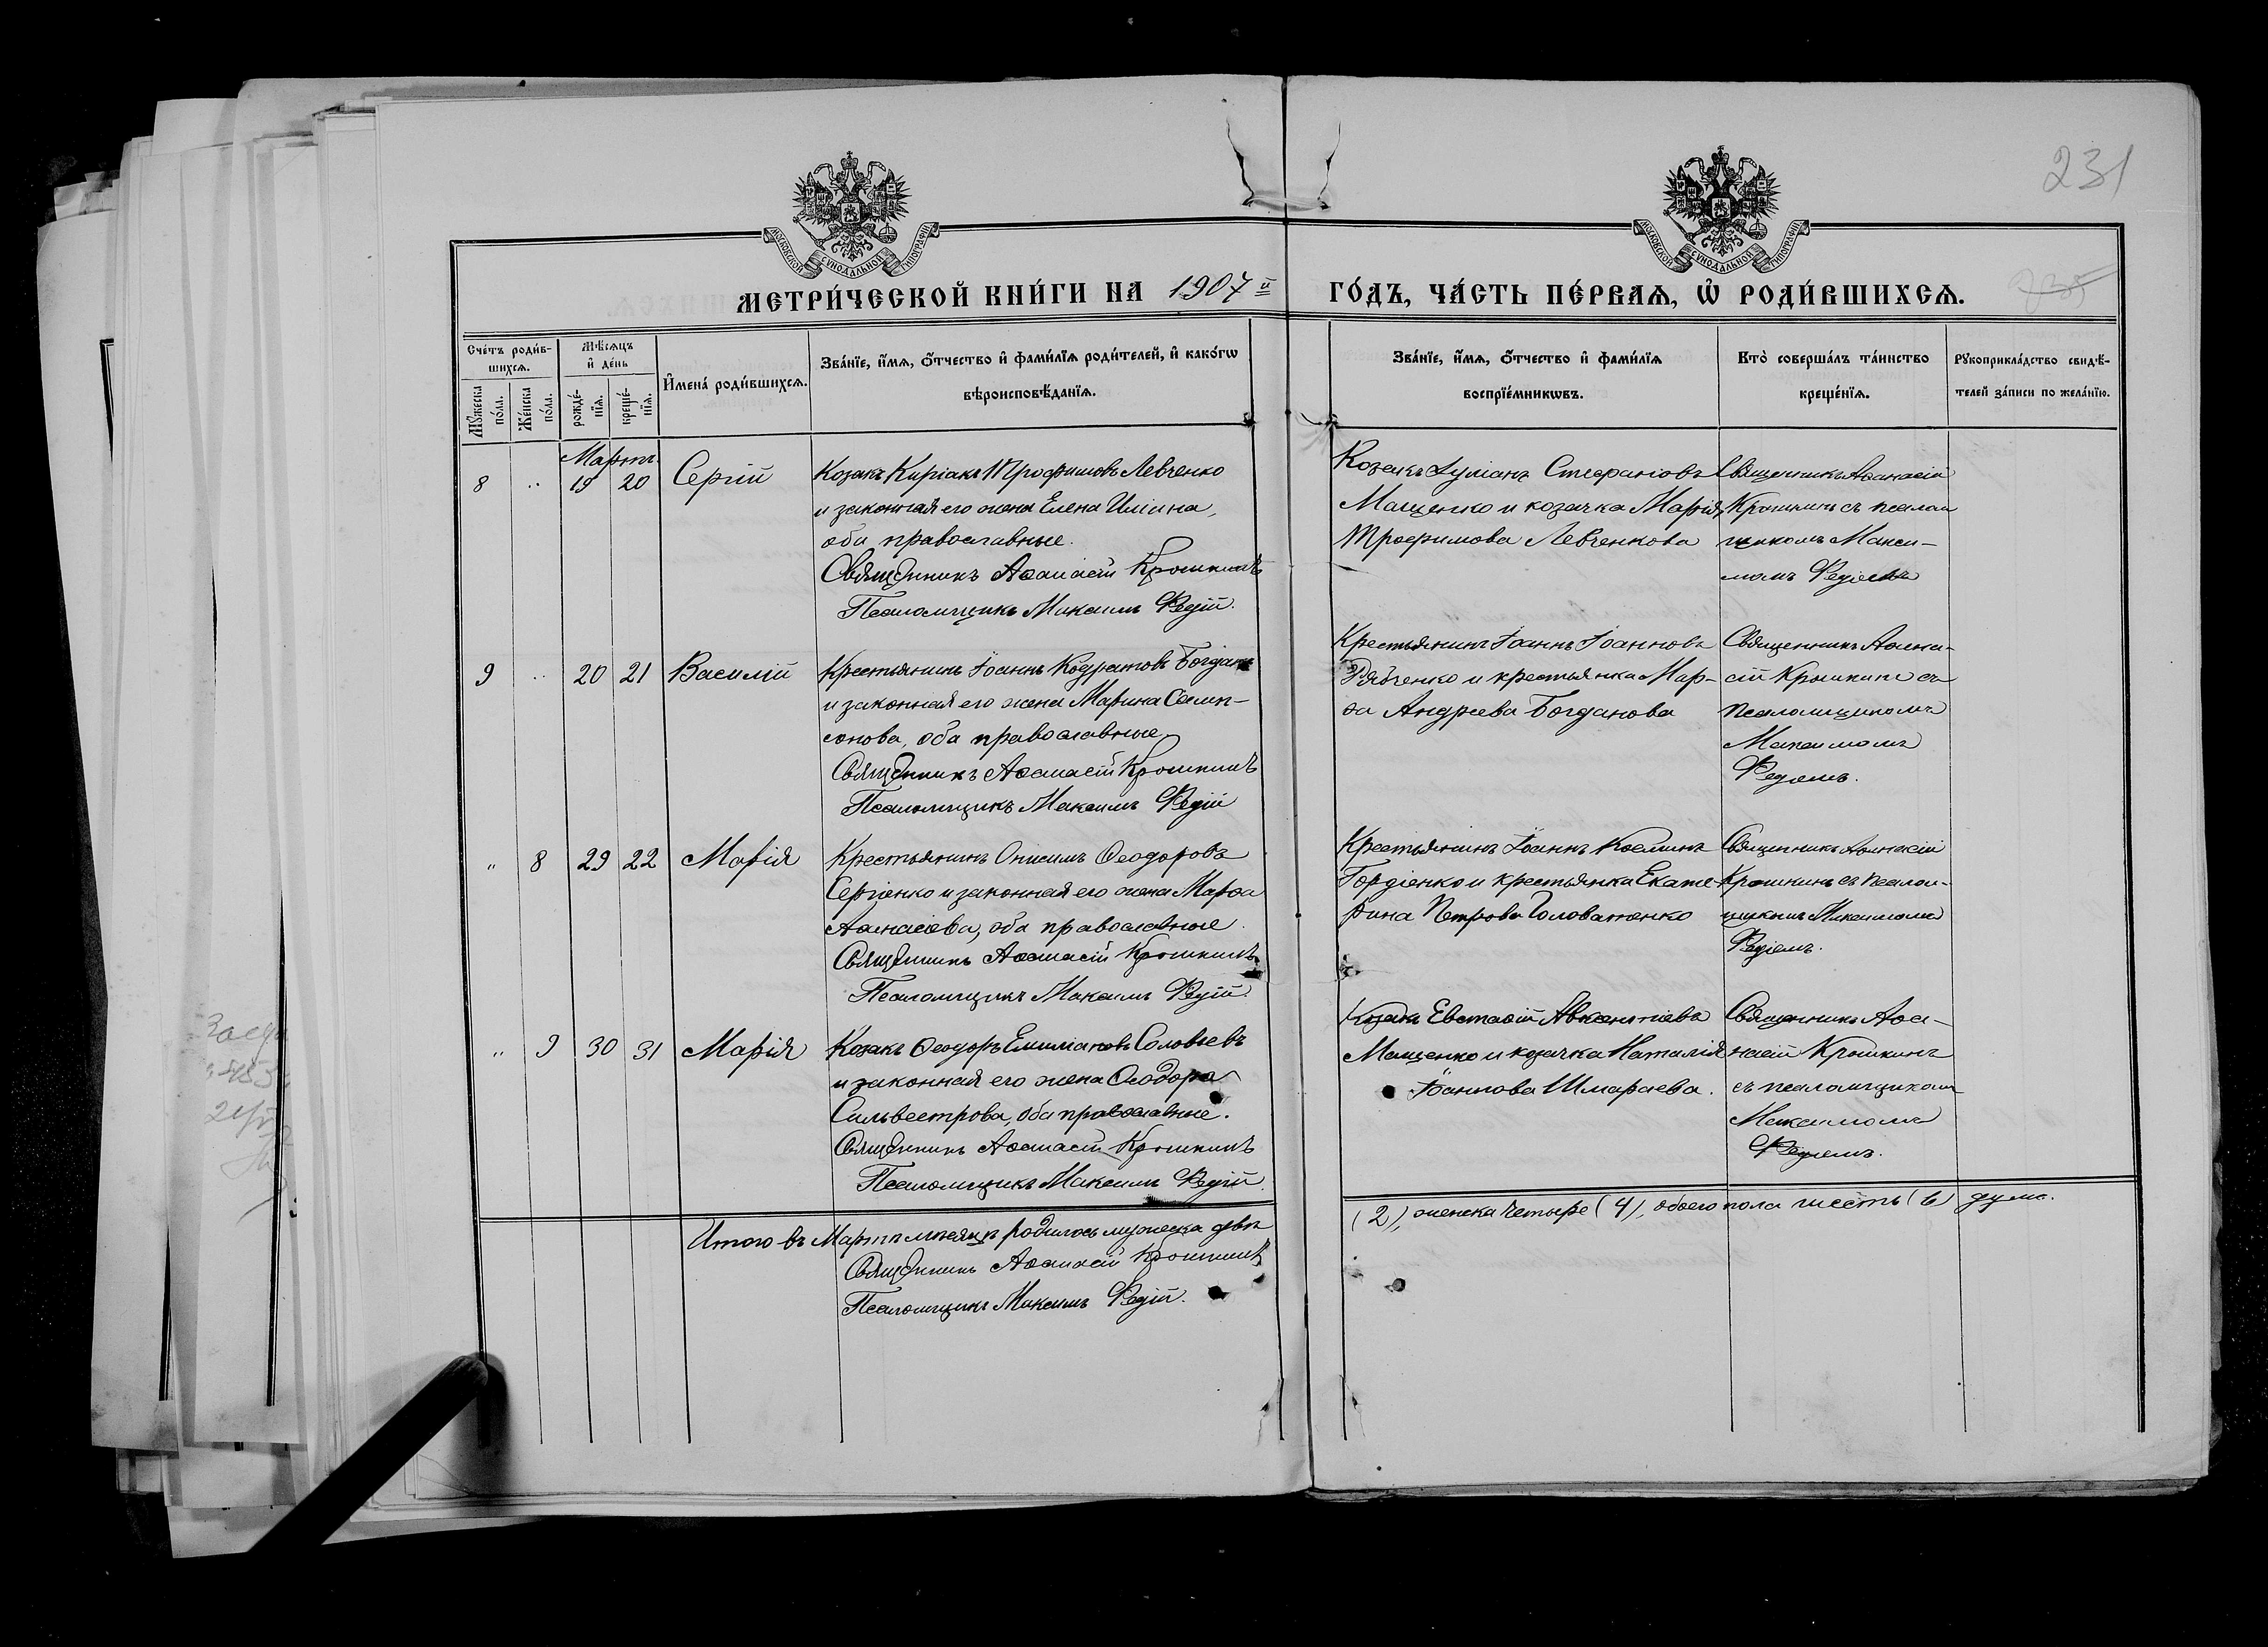 231
МОСКОВСКОЙ СѴНОДАЛЬНОЙ ТИПОГРАФІИ
МОСКОВСКОЙ СѴНОДАЛЬНОЙ ТИПОГРАФІИ
МЕТРИ́ЧЕСКОЙ КНИ́ГИ НА 1907й ГО́ДЪ, ЧА́СТЬ ПЕ́РВАѦ, Ѡ РОДИ́ВШИХСѦ.
Сче́тъ роди́в-
шихсѧ.
Мꙋ́жеска
по́ла.
Же́нска
по́ла.
Мѣ́сѧцъ
и҆ де́нь
рожде́-
нїѧ.
креще́-
нїѧ.
И҆мена̀ роди́вшихсѧ.
Зва́нїе, и҆́мѧ, ѻ҆́тчество и҆ фами́лїѧ роди́телей, и҆ како́гѡ
вѣроисповѣ́данїѧ.
Зва́нїе, и҆́мѧ, ѻ҆́тчество и҆ фами́лїѧ
воспрїе́мникѡвъ.
Кто̀ соверша́лъ та́инство
креще́нїѧ.
Рꙋкоприкла́дство свидѣ́-
телей за́писи по жела́нїю.
Мартъ
8 .. 19 20 Сергій
Козакъ Киріакъ Трофимовъ Левченко
и законная его жена Елена Иліина,
оба православные.
Священникъ Аѳанасій Крошкинъ
Псаломщикъ Максимъ Редій.
Козакъ Іуліанъ Стефановъ
Мащенко и козачка Марія
Трофимова Левченкова
Священникъ Аѳанасій
Крошкинъ съ псалом
щикомъ Макси-
момъ Редіемъ
9 .. 20 21 Василій
Крестьянинъ Іоаннъ Кодратовъ Богданъ
и законная его жена Марина Самп-
сонова, оба православные
Священникъ Аѳанасій Крошкинъ
Псаломщикъ Максимъ Редій
Крестьянинъ Іоаннъ Іоанновъ
Рябченко и крестьянка Мар-
ѳа Андреева Богданова
Священникъ Аѳана-
сій Крошкинъ съ
псаломщикомъ
Максимомъ
Редіемъ.
" 8 29 22 Марія
Крестьянинъ Онисимъ Ѳеодоровъ
Сергіенко и законная его жена Марѳа
Аѳанасіева, оба православные.
Священникъ Аѳанасій Крошкинъ
Псаломщикъ Максимъ Редій.
Крестьянинъ Іоаннъ Косминъ
Гордіенко и крестьянка Екате-
рина Петрова Головатенко
Священникъ Аѳанасій
Крошкинъ съ псалом-
щикомъ Максимомъ
Редіемъ.
" 9 30 31 Марія
Козакъ Ѳеодоръ Емиліановъ Соловьевъ
и законная его жена Ѳеодора
Сильвестрова, оба православные.
Священникъ Аѳанасій Крошкинъ
Псаломщикъ Максимъ Редій.
Козакъ Евстаѳій Авксентіевъ
Мащенко и козачка Наталія
Іоаннова Шмараева.
Священникъ Аѳа-
насій Крошкинъ
съ псаломщикомъ
Максимомъ
Редіемъ.
Итого въ Мартѣ мѣсяцѣ родилось мужеска два (2), женска четыре (4), обоего пола шесть (6) душъ.
Священникъ Аѳанасій Крошкинъ
Псаломщикъ Максимъ Редій.